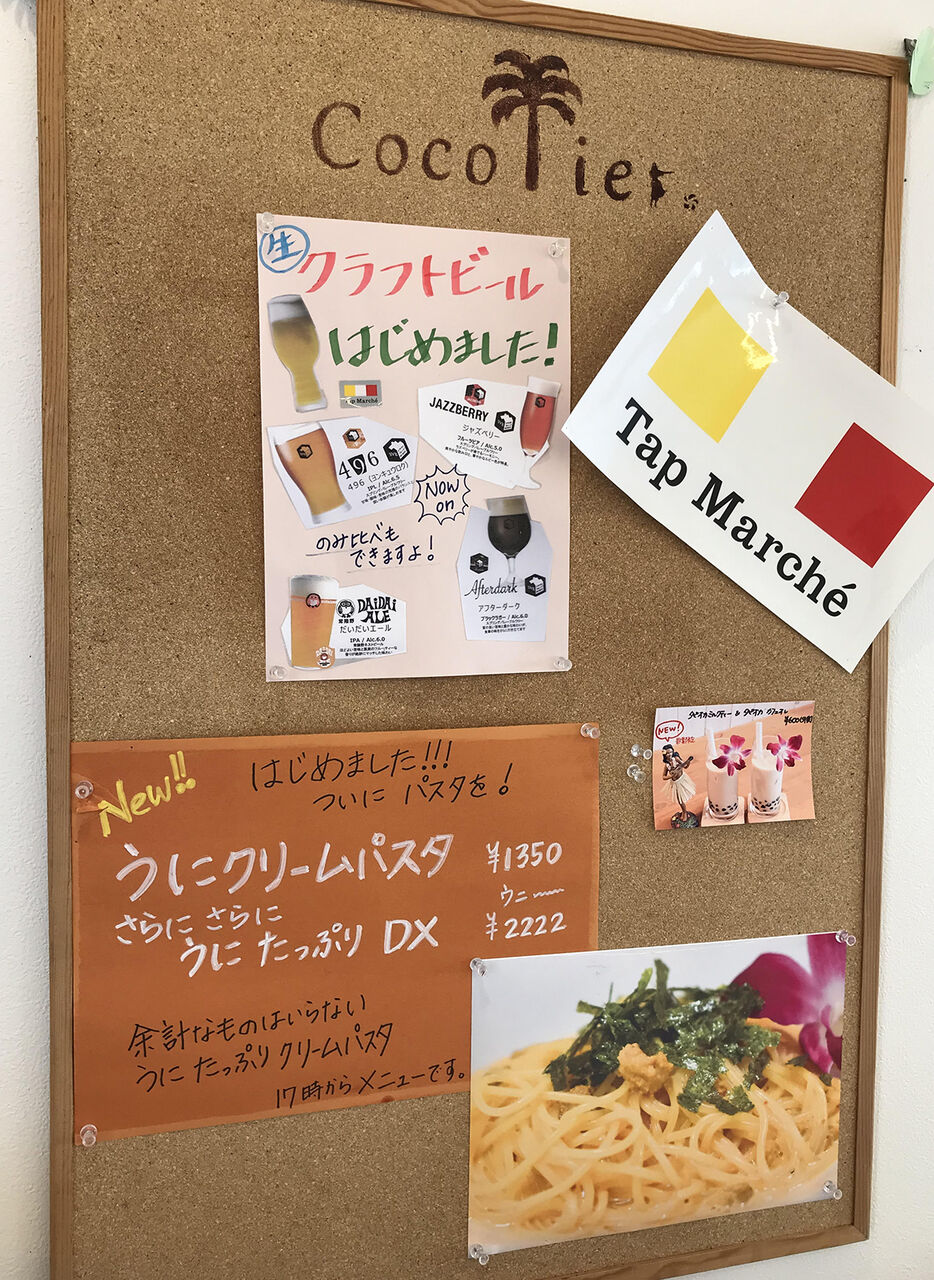 CocoTier
生
クラフトビール
はじめました!
Tap Marché
JAZZBERRY
ジャズベリー
フルーツビア / Alc.5.0
496
496 (ヨンキュウロク)
IPL / Alc.6.5
Now
on
のみ比べも
できますよ!
Afterdark
アフターダーク
ブラックラガー / Alc.6.0
常陸野
DAiDAi
ALE
だいだいエール
IPA / Alc.6.0
常陸野ネストビール
Tap Marché
タピオカミルクティー & タピオカ カフェオレ
NEW!
New!!
はじめました!!!
ついに パスタを!
うにクリームパスタ ¥1350
さらに さらに ウニ
うに たっぷり DX ¥2222
余計なものはいらない
うに たっぷり クリームパスタ
17時からメニューです。